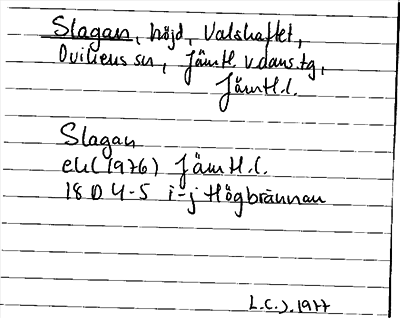 Slagan, höjd, Valshaftet,
Ovikens sn, Jämtl. v. dans. tg,
Jämtl. l.
Slagan
ek (1976) Jämtl. l.
18 D 4-5 i-j Högbrännan
L.C.J. 1977